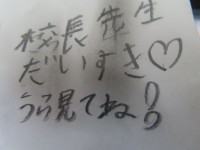 校長先生
だいすき♡
うら見てね!!